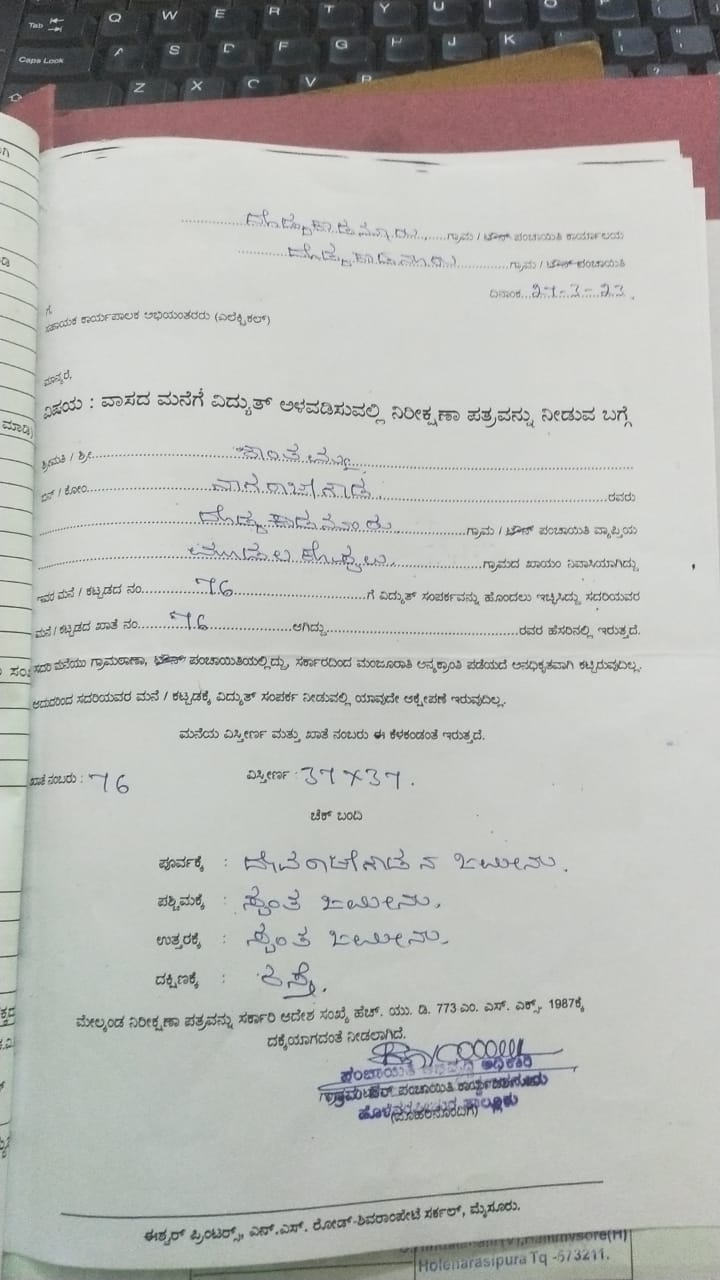 Tab Q W E R T Y U I O P
Caps Lock A S D F G H J K
Z X C V B
ದೊಡ್ಡಕಾಡನೂರು ಗ್ರಾಮ / ಟೌನ್ ಪಂಚಾಯಿತಿ ಕಾರ್ಯಾಲಯ
ದೊಡ್ಡಕಾಡನೂರು ಗ್ರಾಮ / ಟೌನ್ ಪಂಚಾಯಿತಿ
ದಿನಾಂಕ... 27-3-23.
ಗೆ,
ಸಹಾಯಕ ಕಾರ್ಯಪಾಲಕ ಅಭಿಯಂತರರು (ಎಲೆಕ್ಟ್ರಿಕಲ್)
ಮಾನ್ಯರೆ,
ವಿಷಯ : ವಾಸದ ಮನೆಗೆ ವಿದ್ಯುತ್ ಅಳವಡಿಸುವಲ್ಲಿ ನಿರೀಕ್ಷಣಾ ಪತ್ರವನ್ನು ನೀಡುವ ಬಗ್ಗೆ
ಶ್ರೀಮತಿ / ಶ್ರೀ... ಶಾಂತಮ್ಮ
ಬಿನ್ / ಕೋಂ... ನಾಗರಾಜೇಗೌಡ ರವರು
ದೊಡ್ಡಕಾಡನೂರು ಗ್ರಾಮ / ಟೌನ್ ಪಂಚಾಯಿತಿ ವ್ಯಾಪ್ತಿಯ
ಗ್ರಾಮದ ಖಾಯಂ ನಿವಾಸಿಯಾಗಿದ್ದು
ಇವರ ಮನೆ / ಕಟ್ಟಡದ ನಂ... 76 ಗೆ ವಿದ್ಯುತ್ ಸಂಪರ್ಕವನ್ನು ಹೊಂದಲು ಇಚ್ಛಿಸಿದ್ದು ಸದರಿಯವರ
ಮನೆ / ಕಟ್ಟಡದ ಖಾತೆ ನಂ... 76 ಆಗಿದ್ದು... ರವರ ಹೆಸರಿನಲ್ಲಿ ಇರುತ್ತದೆ.
ಸದರಿ ಮನೆಯು ಗ್ರಾಮಠಾಣಾ, ಟೌನ್ ಪಂಚಾಯಿತಿಯಲ್ಲಿದ್ದು, ಸರ್ಕಾರದಿಂದ ಮಂಜೂರಾತಿ ಅನ್ಯಕ್ರಾಂತಿ ಪಡೆಯದೆ ಅನಧಿಕೃತವಾಗಿ ಕಟ್ಟಿರುವುದಿಲ್ಲ.
ಆದುದರಿಂದ ಸದರಿಯವರ ಮನೆ / ಕಟ್ಟಡಕ್ಕೆ ವಿದ್ಯುತ್ ಸಂಪರ್ಕ ನೀಡುವಲ್ಲಿ ಯಾವುದೇ ಆಕ್ಷೇಪಣೆ ಇರುವುದಿಲ್ಲ.
ಮನೆಯ ವಿಸ್ತೀರ್ಣ ಮತ್ತು ಖಾತೆ ನಂಬರು ಈ ಕೆಳಕಂಡಂತೆ ಇರುತ್ತದೆ.
ಖಾತೆ ನಂಬರು : 76 ವಿಸ್ತೀರ್ಣ : 37 x 37.
ಚೆಕ್ ಬಂದಿ
ಪೂರ್ವಕ್ಕೆ : ದೇವರಾಜೇಗೌಡನ ಜಮೀನು.
ಪಶ್ಚಿಮಕ್ಕೆ : ಸ್ವಂತ ಜಮೀನು.
ಉತ್ತರಕ್ಕೆ : ಸ್ವಂತ ಜಮೀನು.
ದಕ್ಷಿಣಕ್ಕೆ : ರಸ್ತೆ.
ಮೇಲ್ಕಂಡ ನಿರೀಕ್ಷಣಾ ಪತ್ರವನ್ನು ಸರ್ಕಾರಿ ಆದೇಶ ಸಂಖ್ಯೆ ಹೆಚ್. ಯು. ಡಿ. 773 ಎಂ. ಎಸ್. ಎಕ್ಸ್. 1987ಕ್ಕೆ
ದಕ್ಕೆಯಾಗದಂತೆ ನೀಡಲಾಗಿದೆ.
ಪಂಚಾಯಿತಿ ಅಭಿವೃದ್ಧಿ ಅಧಿಕಾರಿ
ಈಶ್ವರ್ ಪ್ರಿಂಟರ್ಸ್, ಎನ್.ಎಸ್. ರೋಡ್-ಶಿವರಾಂಪೇಟೆ ಸರ್ಕಲ್, ಮೈಸೂರು.
Holenarasipura Tq -573211.